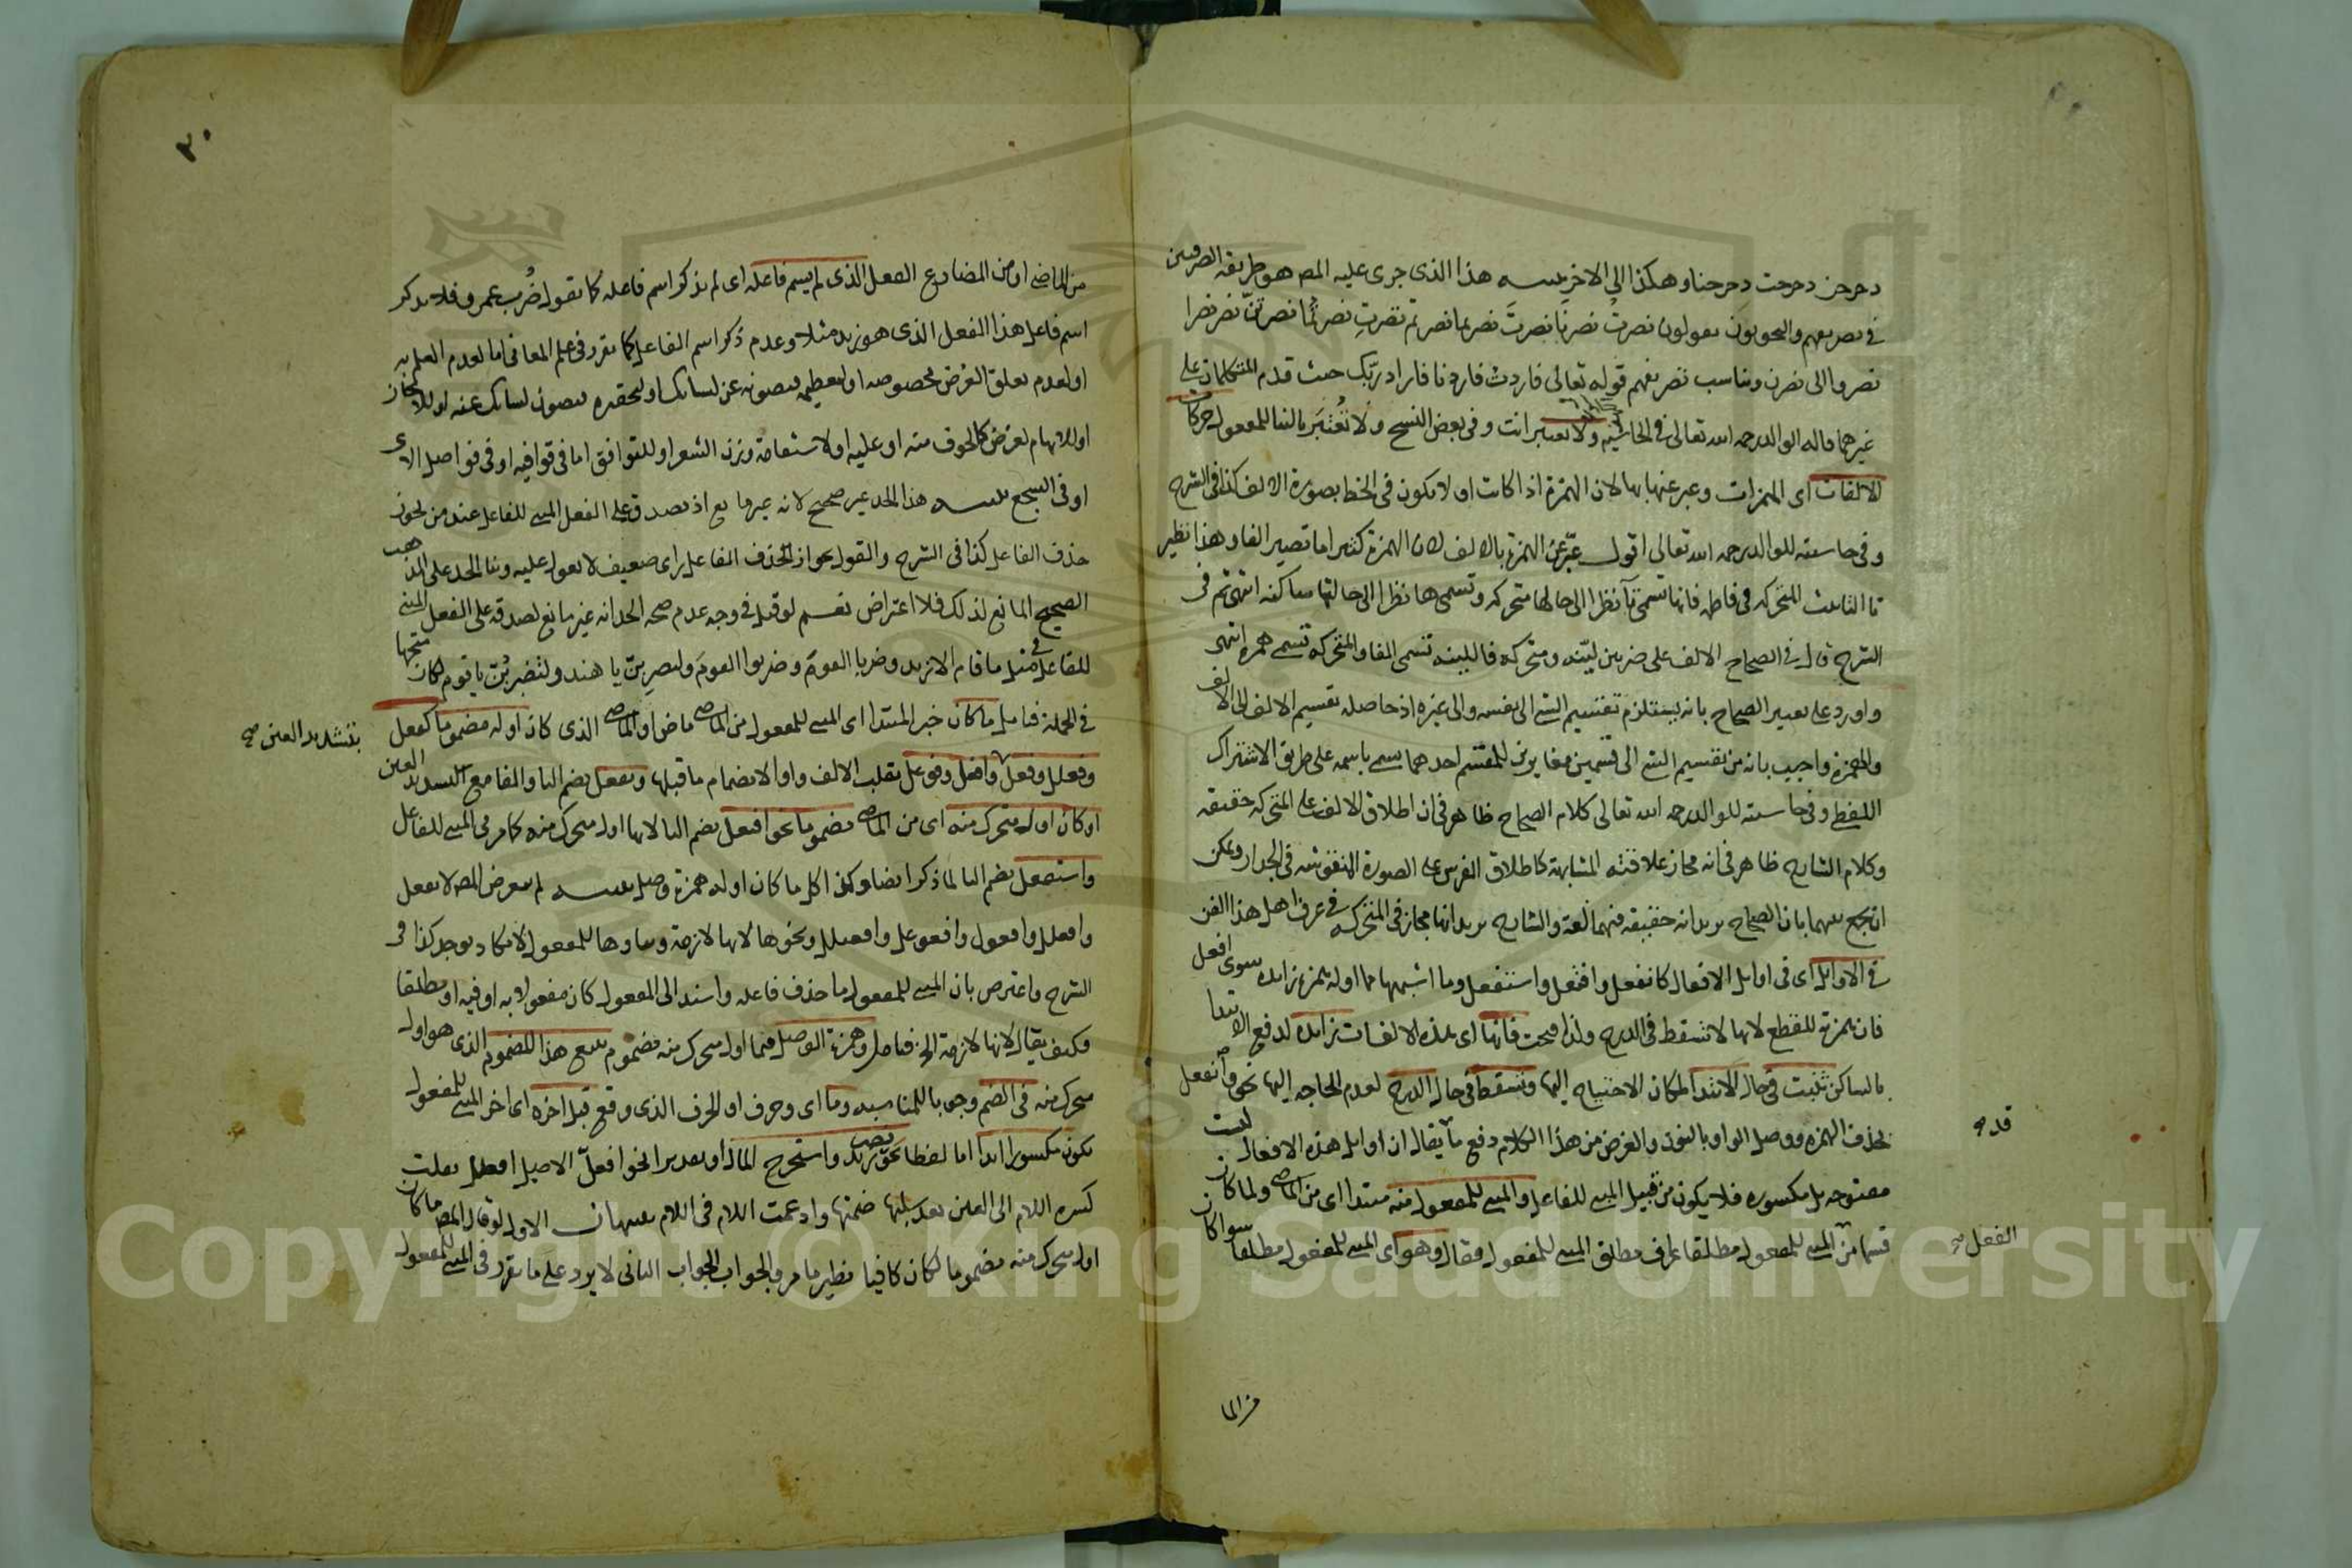 دحرجن دحرجت دحرجنا وهكذا الى الاخر تنبيه هذا الذى جرى عليه المص هو طريقة الصرفيين
فى تصريفهم والنحويون يقولون نصرتُ نصرنا نصرتَ نصرتما نصرتم نصرتِ نصرتما نصرتنّ نصر نصرا
نصروا الى نصرن ويناسب تصريفهم قوله تعالى فاردت فاردنا فاراد ربّك حيث قدم المتكلمان على
غيرهما قاله الوالد رحمه الله تعالى فى الحاشية ولا تعتبر انت وفى بعض النسخ ولا تُعْتَبَر بالبنا للمفعول حركات
الالفات اى الهمزات وعبر عنها بها لان الهمزة اذا كانت اولا يكون فى الخط بصورة الالف كذا فى الشرح
وفى حاشيته للوالد رحمه الله تعالى اقول عبّر عن الهمزة بالالف لان الهمزة كثيرا ما تصير الفا وهذا نظير
تا التانيث المتحركة فى فاطمة فانها تسمى تآ نظرا الى حالها متحركة وتسمى ها نظرا الى حالتها ساكنه انتهى ثم فى
الشرح قال فى الصحاح الالف على ضربين ليّنه ومتحركه فاللينه تسمى الفا والمتحركه تسمى همزه انتهى
واورد على تعبير الصحاح بانه يستلزم تقسيم الشى الى نفسه والى غيره اذ حاصله تقسيم الالف الى الالف
والهمزة واجيب بانه من تقسيم الشى الى قسمين مغايرين للمقسم احدهما يسمى باسمه على طريق الاشتراك
اللفظى وفى حاشيته للوالد رحمه الله تعالى كلام الصحاح ظاهر فى ان اطلاق الالف على المتحركه حقيقه
وكلام الشارح ظاهر فى انه مجاز علاقته المشابهة كاطلاق الفرس على الصورة المنقوشه فى الجدار ويمكن
ان يجمع بينهما بان الصحاح يريد انه حقيقه فيهما لغة والشارح يريد انها مجاز فى المتحركه فى عرف اهل هذا الفن
فى الاوايل اى فى اوايل الافعال كانفعل وافتعل واستفعل وما اشبهها مما اوله همزة زايده سوى افعل
فان همزته للقطع لانها لا تسقط فى الدرج ولذا فتحت فانها اى هذه الالفات زايده لدفع الابتدا
بالساكن تثبت فى حال الابتدا لمكان الاحتياج اليها وتسقط فى حال الدرج لعدم الحاجه اليها نحو وانفعل
بحذف الهمزه ووصل الواو بالنون والغرض من هذا الكلام دفع ما يقال ان اوايل هذه الافعال ليست
قد صح
مفتوحه بل مكسوره فلا يكون من قبيل المبنى للفاعل والمبنى للمفعول منه مبتدا اى من الماضى ولما كان
قسما من المبنى للمفعول مطلقا عرف مطلق المبنى للمفعول فقال وهو اى المبنى للمفعول مطلقا سوا كان
الفعل صح
من الما
٣٠
من الماضى او من المضارع الفعل الذى لم يسم فاعله اى لم يذكر اسم فاعله كما تقول ضُرب عمرو فلا يذكر
اسم فاعل هذا الفعل الذى هو زيد مثلا وعدم ذكر اسم الفاعل كما تقرر فى علم المعانى اما لعدم العلم به
او لعدم تعلق الغرض بخصوصه او لتعظيمه فتصونه عن لسانك او لتحقيره فتصون لسانك عنه او للايجاز
او للابهام لغرض كالخوف منه او عليه او لاستقامة وزن الشعر او للتوافق اما فى قوافيه او فى فواصل الاى
او فى السجع تنبيه هذا الحد غير صحيح لانه غير مانع اذ يصدق على الفعل المبنى للفاعل عند من يجوز
حذف الفاعل كذا فى الشرح والقول بجواز حذف الفاعل راى ضعيف لا يعول عليه وبنا الحد على المذهب
الصحيح المانع لذلك فلا اعتراض نعم لو قيل فى وجه عدم صحة الحد انه غير مانع لصدقه على الفعل المبنى
للفاعل فى مثل ما قام الا زيد وضربا القوم وضربوا القوم ولتضرِبنّ يا هند ولتضربُنّ يا قوم لكان متجها
فى الجملة فتامل ما كان خبر المبتدا اى المبنى للمفعول من الماضى ماض او الماضى الذى كان اوله مضموما كفعل
بتشديد العين صح
وفعلل وفعل وافعل وفوعل بقلب الالف واوا لانضمام ما قبلها وتفعل بضم التا والفا مع تشديد العين
او كان اول متحرك منه اى من الماضى مضموما نحو افتعل بضم التا لانها اول متحرك منه كما مر فى المبنى للفاعل
واستفعل بضم التا لما ذكر ايضا وكذا كل ما كان اوله همزة وصل تنبيه لم يتعرض المص لانفعل
وافعلل وافعول وافعوعل وافعنلل ونحوها لانها لازمة وبناوها للمفعول لا يكاد يوجد كذا فى
الشرح واعترض بان المبنى للمفعول ما حذف فاعله واسند الى المفعول كان مفعولا به او فيه او مطلقا
فكيف يقال لانها لازمة الخ فتامل وهمزة الوصل فيما اول متحرك منه مضموم تتبع هذا المضموم الذى هو اول
متحرك منه فى الضم وجوبا للمناسبه وما اى وحرف او الحرف الذى وقع قبل اخره اى اخر المبنى للمفعول
يكون مكسورا ابدا اما لفظا نحو نصر زيد واستخرج المال او تقديرا نحو افعلّ الاصل افعلل نقلت
كسره اللام الى العين بعد سلبها ضمتها وادغمت اللام فى اللام تنبيهان الاول لو قال المص ما كان
اول متحرك منه مضموما لكان كافيا نظير ما مر والجواب الجواب الثانى لا يرد على ما تقرر فى المبنى للمفعول